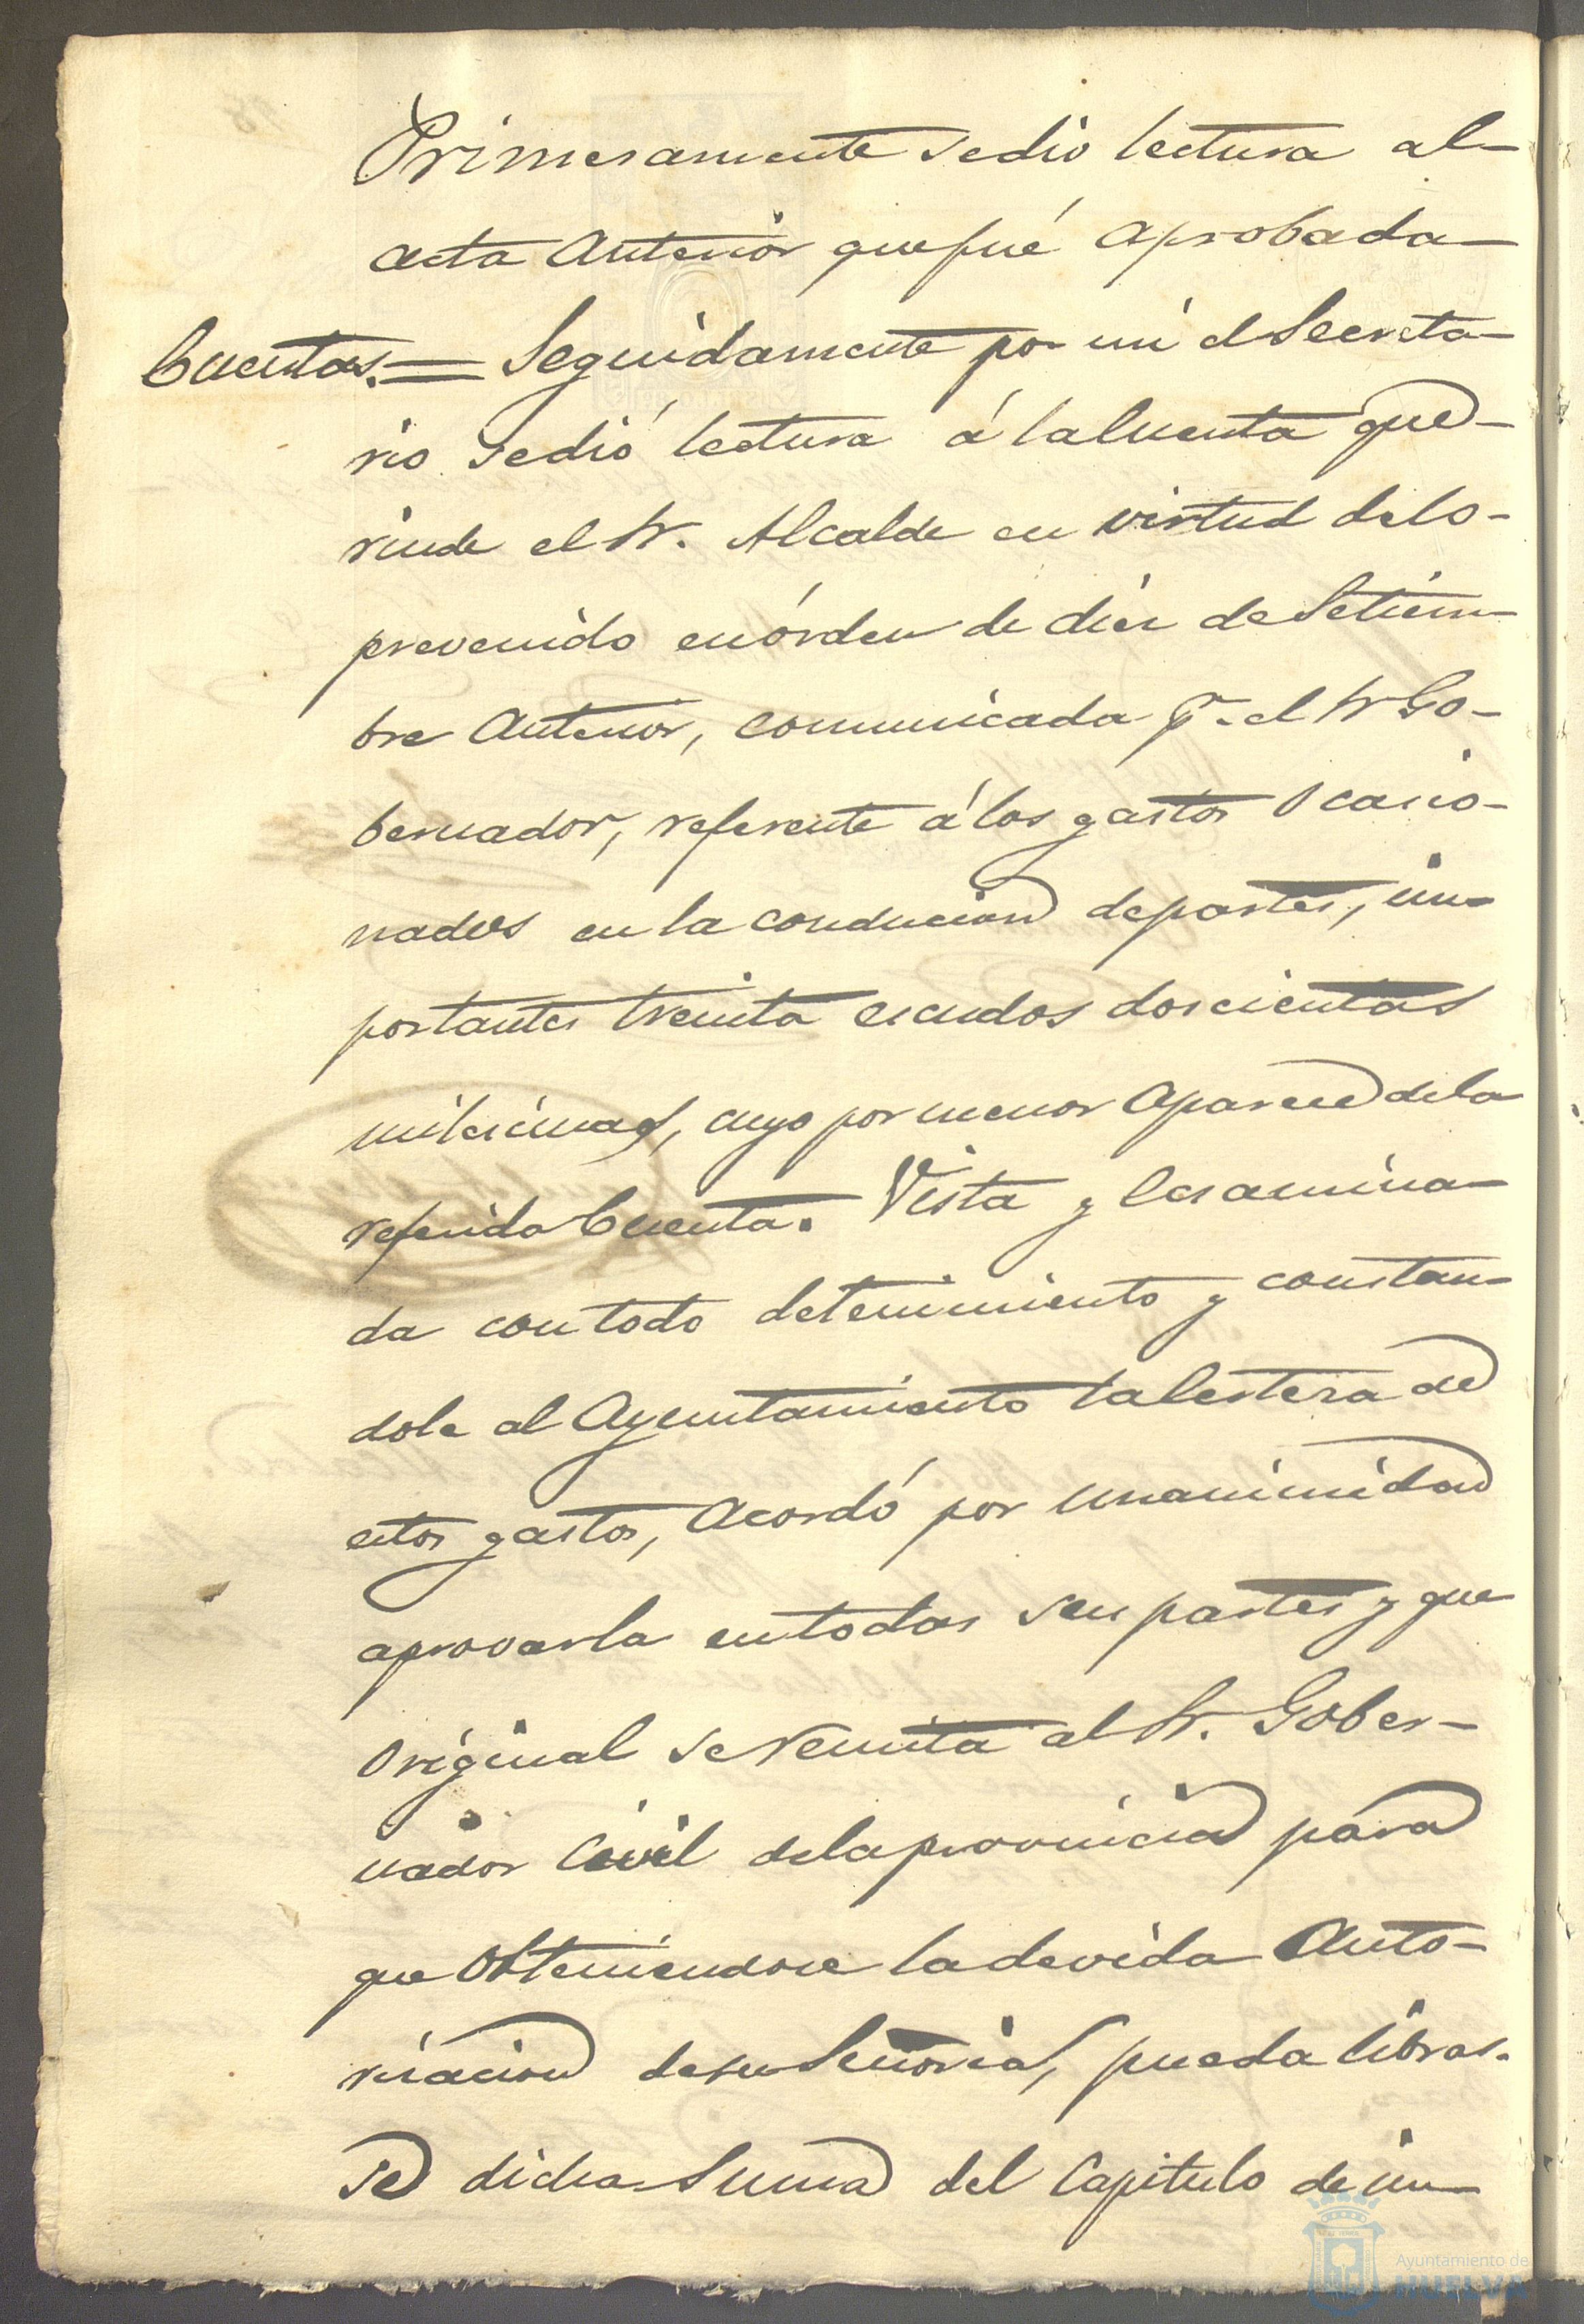 Primeramente se dio lectura al
acta anterior que fué aprobada—
Cuentas.= Seguidamente por mi el Secreta-
rio se dió lectura á la Cuenta que-
rinde el Sr. Alcalde en virtud de lo-
prevenido en órden de diez de Setiem-
bre anterior, comunicada pr. el Sr Go-
bernador, referente á los gastos ocasio-
nados en la conducion de partes, im-
portantes treinta escudos doscientas
milesimas, cuyo por menor aparece de la
referida Cuenta. Vista y ecsamina-
da con todo detenimiento y constan-
dole al Ayuntamiento la certeza de
estos gastos, acordó por unanimidad
aprovarla en todas sus partes y que
original se remita al Sr. Gober-
nador Civil de la provincia para
que obteniendose la devida auto-
rizacion de su Señoria, pueda librar-
se dicha Suma del Capitulo de im-
Ayuntamiento de
HUELVA